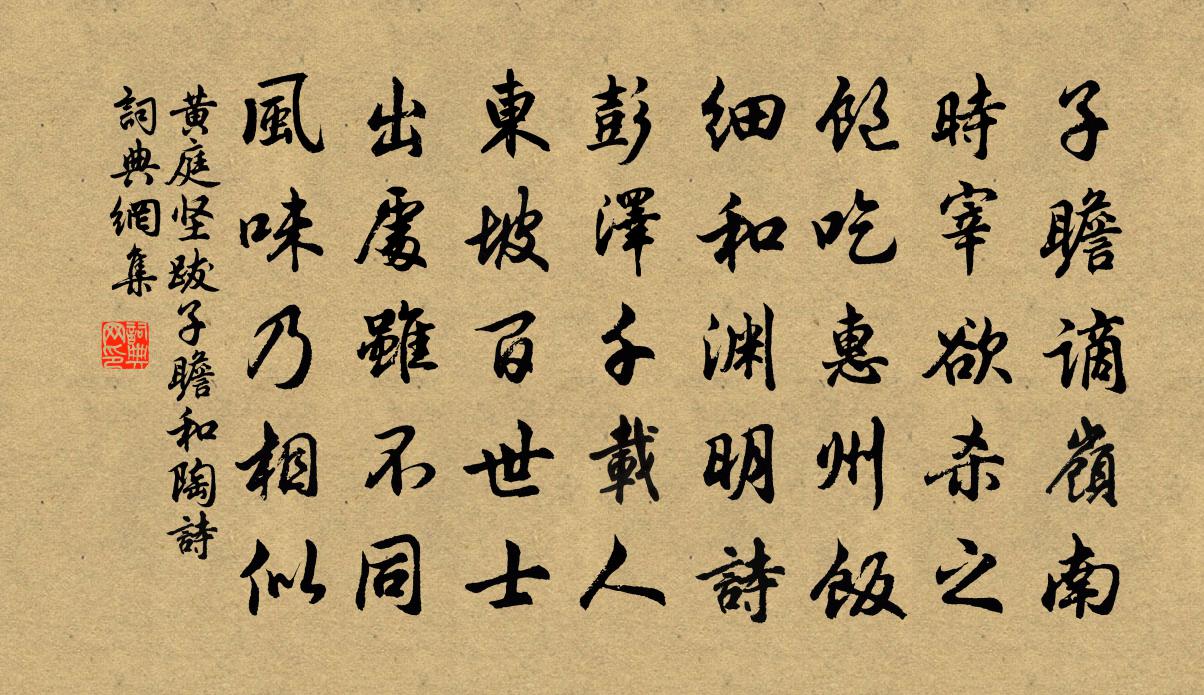 子瞻謫嶺南
時宰欲杀之
飽吃惠州飯
細和渊明詩
彭澤千載人
東坡百世士
出處雖不同
風味乃相似
黄庭坚跋子瞻和陶詩
詞典網集
詞典网印